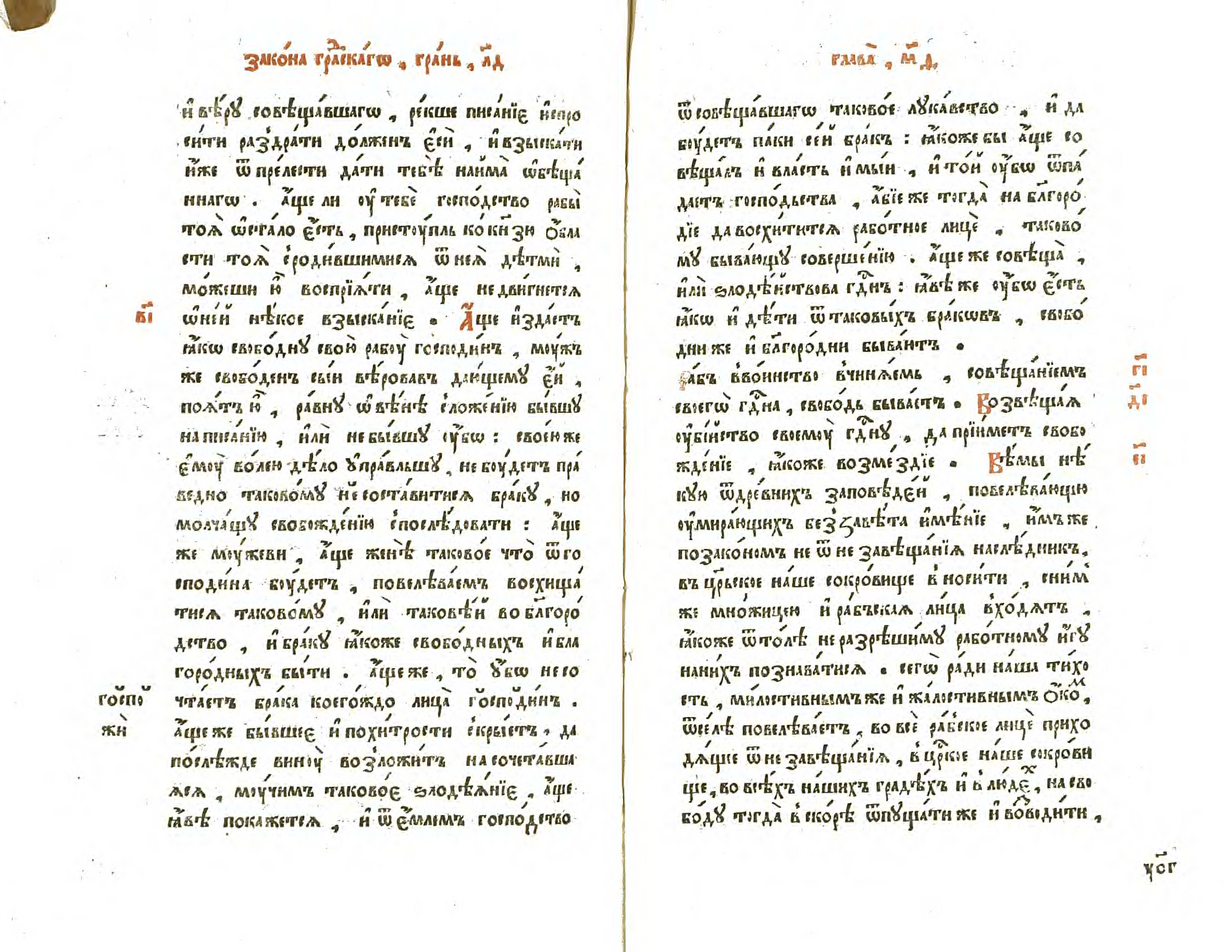 Зако́на гра́скагѡ, гра́нь, л҃д
и҆ вѣ́рꙋ совѣща́вшагѡ, ре́кше писа́нїе и҆спро
си́ти раздра́ти до́лженъ є҆сѝ, и҆ взыска́ти
и҆́же ѿ пре́лести да́ти тебѣ̀ наима̀ ѡ҆бѣща́
ннагѡ. а҆́ще ли ᲂу҆ тебѐ госпо́дство рабы̀
тоѧ̀ ѡ҆ста́ло є҆́сть, пристꙋ́пль ко кнѧ́зю ѻ҆́бла
сти тоѧ̀ с̾роди́вшимисѧ ѿ неѧ̀ дѣтмѝ,
мо́жеши ю҆̀ воспрїѧ́ти, а҆́ще не дви́гнетсѧ
в҃і
ѡ҆ не́й нѣ́кое взыска́нїе. А҆́ще и҆зда́стъ
ꙗ҆́кѡ свобо́днꙋ свою̀ рабꙋ̀ господи́нъ, мꙋ́жъ
же свобо́денъ сы́и вѣ́ровавъ даю́щемꙋ є҆́й,
поѧ́тъ ю҆̀, ра́внꙋ ѡ҆ вѣ́нѣ сложе́нїю бы́вшꙋ
написа́нїю, и҆лѝ не бы́вшꙋ ᲂу҆́бѡ: свое́юже
є҆мꙋ̀ во́лею дѣ́ло ᲂу҆пра́вльшꙋ, не бꙋ́детъ пра́
ведно тако́вомꙋ не соста́витисѧ бра́кꙋ, но
молча́щꙋ свобожде́нїю с̾послѣ́довати: а҆́ще
же мꙋ́жеви, а҆́ще женѣ̀ тако́вое что̀ ѿ го
споди́на бꙋ́детъ, повелѣва́емъ восхища́
тисѧ тако́вомꙋ, и҆лѝ тако́вѣй во бл҃горо́
дство, и҆ бра́кꙋ ꙗ҆́коже свобо́дныхъ и҆ бла
горо́дныхъ бы́ти. а҆́ще же, то̀ ᲂу҆́бѡ не со
госпо
жѝ
чта́етъ бра́ка коего́ждо лица̀ го́споди́нъ.
а҆́ще же бы́вшее и҆ по хи́трости скры́етъ, да
послѣ́жде винꙋ̀ возложи́тъ на сочета́вша
ѧсѧ, мꙋ́чимъ тако́вое ѕлодѣѧ́нїе, а҆́ще
ꙗ҆́вѣ пока́жетсѧ, и҆ ѿе́млемъ госпо́дство
глава̀, м҃д,
ѿ совѣща́вшагѡ тако́вое лꙋка́вство, и҆ да
бꙋ́детъ па́ки се́й бра́къ: ꙗ҆́коже бы а҆́ще со
вѣща́лъ и҆ вла́сть и҆мы́и, и҆ то́й ᲂу҆́бѡ ѿпа́
даетъ госпо́дьства, а҆́бїе же тогда̀ на бл҃горо́
дїе да восхи́титсѧ рабо́тное лицѐ, тако́во
мꙋ быва́ющꙋ соверше́нїю. а҆́ще же совѣща̀,
и҆лѝ ѕлодѣ́йствова гд҇нъ: ꙗ҆́вѣ же ᲂу҆́бѡ є҆́сть
ꙗ҆́кѡ и҆ дѣ́ти ѿ тако́выхъ бра́кѡвъ, свобо́
дни же и҆ бл҃горо́дни быва́ютъ.
г҃і
ра́бъ в̾во́инство в̾чинѧ́емь, совѣща́нїемъ
д҃і
своегѡ̀ гд҇на, свобо́дь быва́етъ. Возвѣща́ѧ
ᲂу҆бі́йство своемꙋ̀ гд҇нꙋ, да прїи́метъ свобо
є҃і
жде́нїе, ꙗ҆́коже возме́здїе. Вѣ́мы нѣ́
кꙋю ѿ дре́внихъ за́повѣдей, повелѣва́ющꙋю
ᲂу҆мира́ющихъ без̾ завѣ́та и҆мѣ́нїе, и҆́мъ же
по зако́номъ не ѿ не завѣща́нїѧ наслѣ́дникъ,
въ цр҇ьское на́ше сокро́вище в̾носи́ти, с ни́м
же мно́жицею и҆ ра́бъская ли́ца вхо́дѧтъ,
ꙗ҆́коже ѿто́лѣ не разрѣши́мꙋ рабо́тномꙋ и҆́гꙋ
на ни́хъ познава́тисѧ. сегѡ̀ ра́ди на́ша ти́хо
сть, ми́лостивнымъ же и҆ жа́лостивнымъ ѻ҆́ком,
ѿсе́лѣ повелѣва́етъ, во всѐ ра́бское лицѐ прихо
дѧ́щее ѿ не завѣща́нїѧ, в цр҇кое на́ше сокро́ви
ще, во всѣ́хъ на́шихъ градѣ́хъ и҆ в̾ лю́дех, на сво
бо́дꙋ тогда̀ в ско́рѣ ѿпꙋща́ти же и҆ воводи́ти,
ѵ҃ог